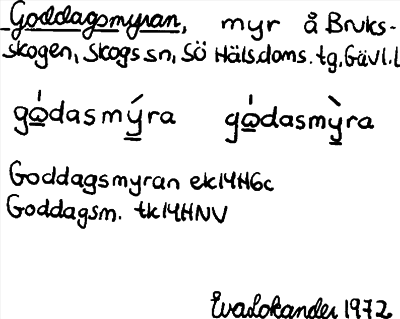 Goddagsmyran, myr å Bruks-
skogen, Skogs sn, SÖ Häls.doms. tg, Gävl.l
gó̱dasmý̱ra gó̱dasmỳ̱ra
Goddagsmyran ek14H6c
Goddagsm. tk14HNV
Eva Lokander 1972